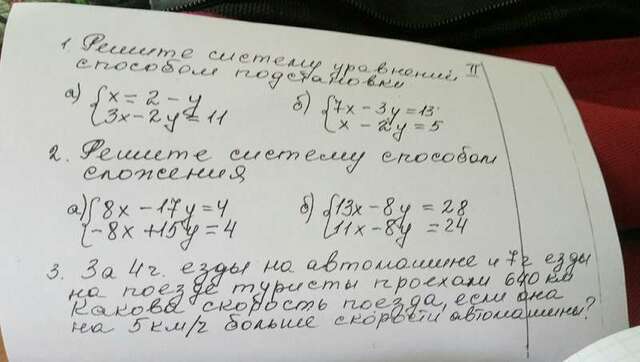 II
1. Решите систему уравнений,
способом подстановки
а) {x = 2 - y б) {7x - 3y = 13
3x - 2y = 11 x - 2y = 5
2. Решите систему способом
сложения,
а) {8x - 17y = 4 б) {13x - 8y = 28
-8x + 15y = 4 11x - 8y = 24
3. За 4 г. езды на автомашине и 7 г езды
на поезде туристы проехали 640 км
Какова скорость поезда, если она
на 5 км/г больше скорости автомашины?